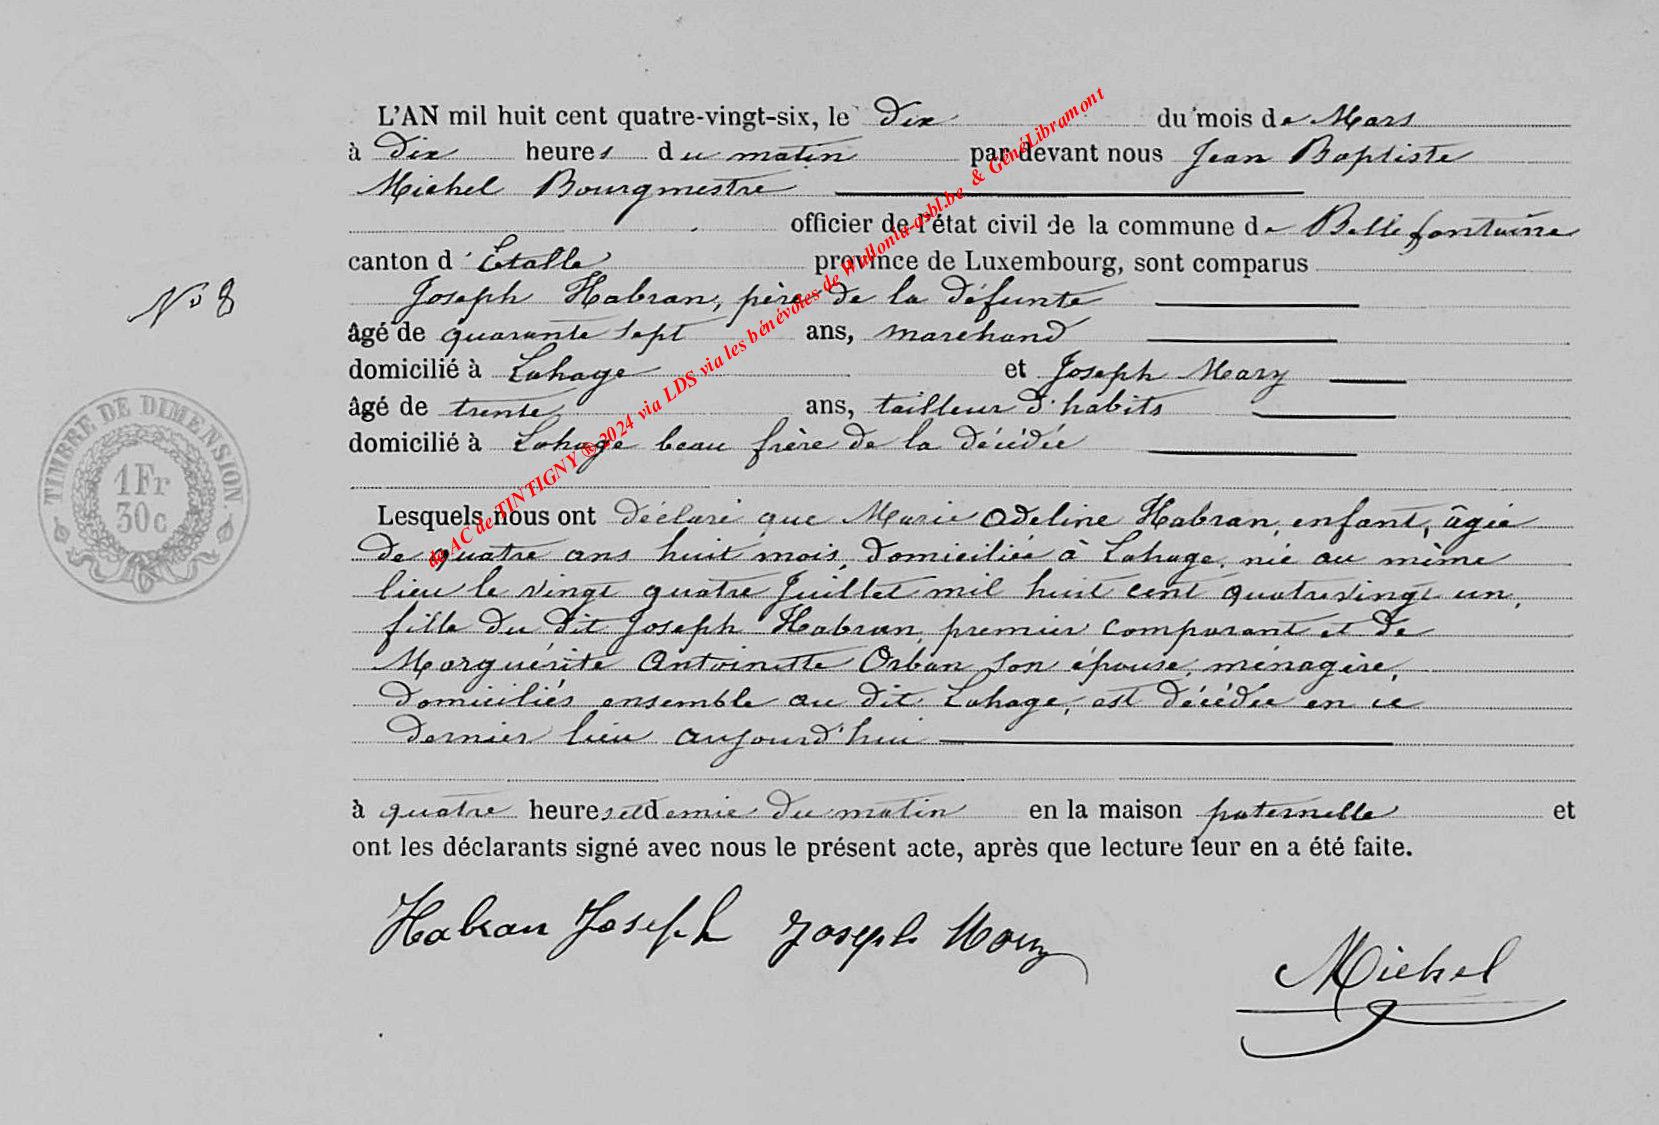 L'AN mil huit cent quatre-vingt-six, le Dix du mois de Mars
à Dix heures du matin par devant nous Jean Baptiste
Michel Bourgmestre
officier de l'état civil de la commune de Bellefontaine
canton d'Etalle province de Luxembourg, sont comparus
Joseph Habran, père de la défunte
N° 8
âgé de quarante sept ans, marchand
domicilié à Lahage et Joseph Mary
âgé de trente ans, tailleur d'habits
domicilié à Lahage beau frère de la décédée
TIMBRE DE DIMENSION.
1Fr
30c
Lesquels nous ont déclaré que Marie Adeline Habran, enfant, âgée
de quatre ans huit mois, domiciliée à Lahage, née au même
lieu le vingt quatre Juillet mil huit cent quatrevingt un,
fille du dit Joseph Habran, premier comparant et de
Marguérite Antoinette Orban son épouse, ménagère,
domiciliés ensemble au dit Lahage, est décédée en ce
dernier lieu aujourd'hui
à quatre heures et demie du matin en la maison paternelle et
ont les déclarants signé avec nous le présent acte, après que lecture leur en a été faite.
Habran Joseph Joseph Mary
Michel
de AC de TINTIGNY ® 2024 via LDS via les bénévoles de Wallonia-asbl.be & GénéLibramont